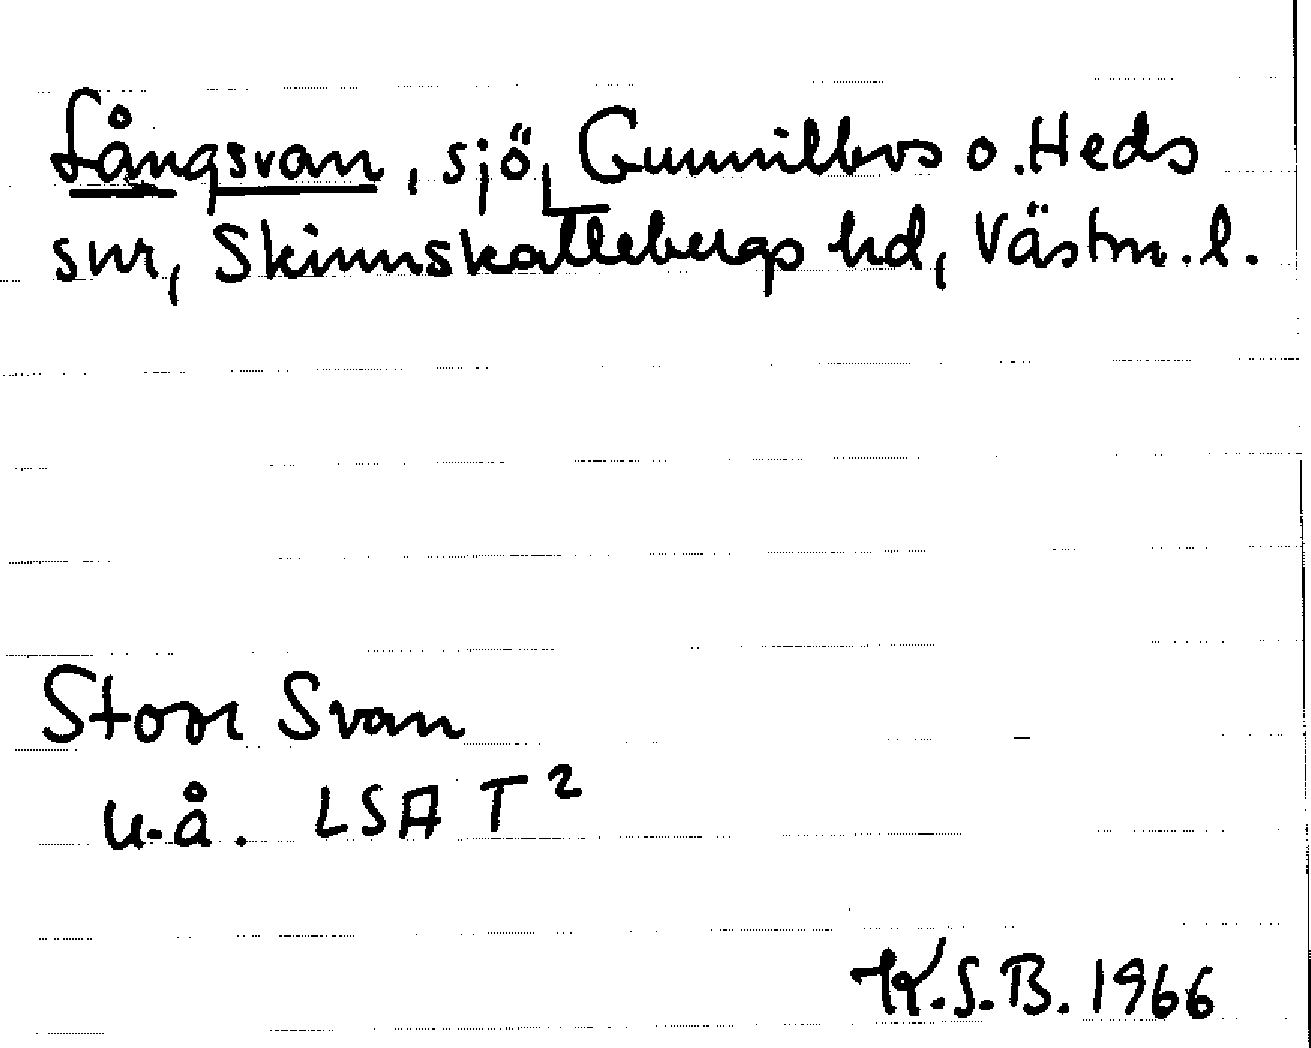 Långsvan, sjö, Gunnilbos o. Heds
snr, Skinnskattebergs hd, Västm. l.
Stora Svan
u.å. LSA T2
K.S.B. 1966